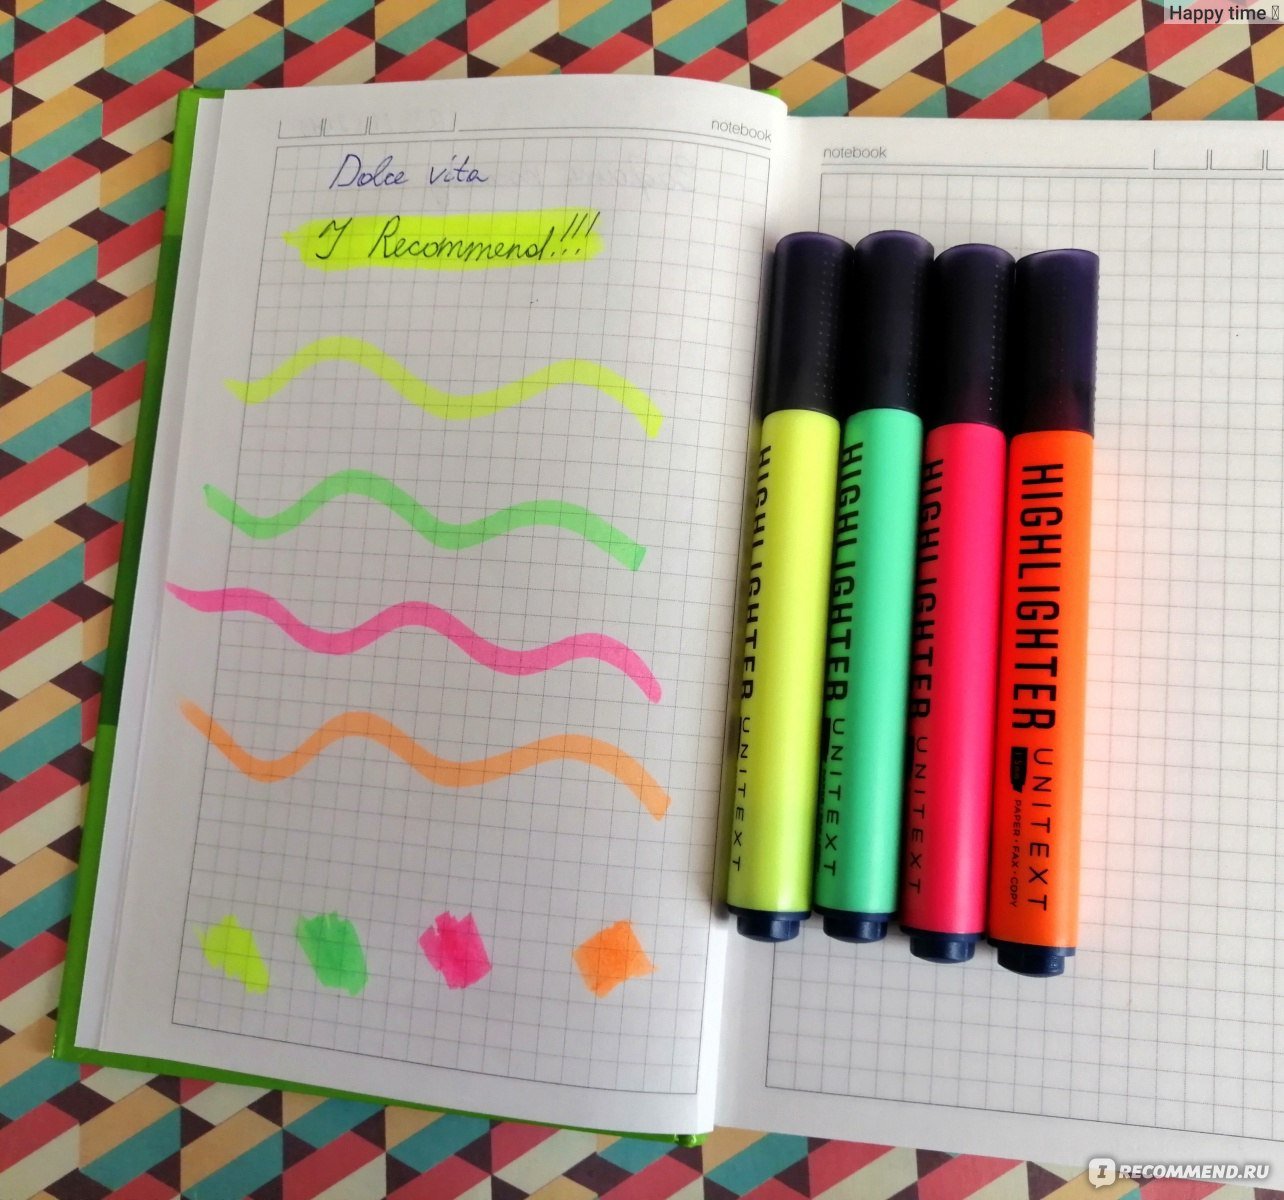 Happy time
notebook
notebook
Dolce vita
I Recommend!!!
HIGHLIGHTER UNITEXT
HIGHLIGHTER UNITEXT
HIGHLIGHTER UNITEXT
HIGHLIGHTER UNITEXT
PAPER · FAX · COPY
I RECOMMEND.RU